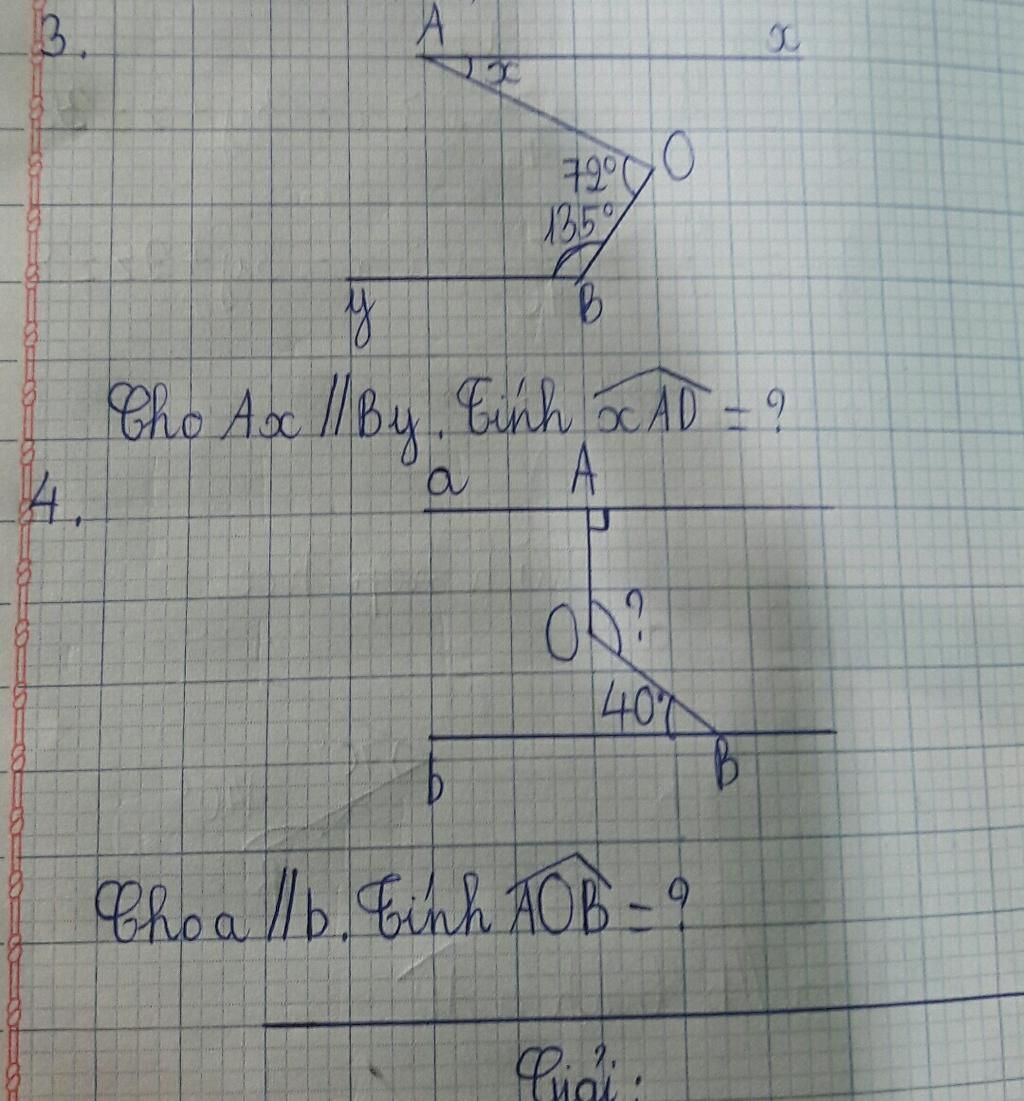 3.
A
x
x
72°
O
135°
y
B
Cho Ax // By. Tính xAO = ?
4.
a
A
O
?
40°
b
B
Cho a // b. Tính AOB = ?
Giải: